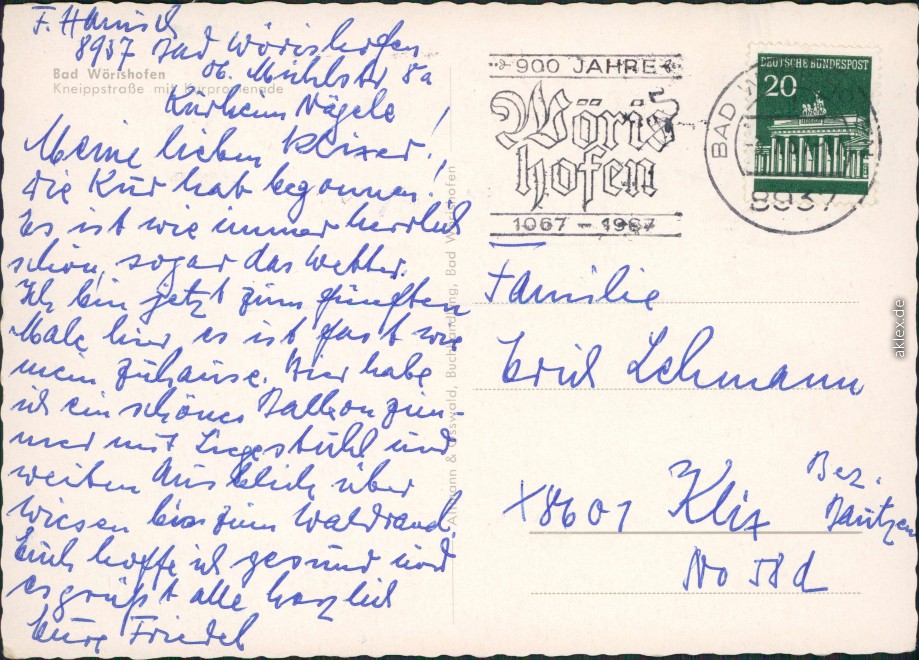 F. Hanisch
8937 Bad Wörishofen
Ob. Mühlstr 8a
Kurheim Nägele
Bad Wörishofen
Kneippstraße mit Kurpromenade
Meine lieben Klixer!
Die Kur hab begonnen!
Es ist wie immer herrlich
schön, sogar das Wetter.
Ich bin jetzt zum fünften
Male hier, es ist fast wie
mein Zuhause. Hier habe
ich ein schönes Balkonzim-
mer mit Liegestuhl und
weiten Ausblick über
Wiesen bis zum Waldrand
Euch hoffe ich gesund und
es grüßt alle herzlich
Eure Friedel
& Osswald, Buchhandlung, Bad Wörishofen
900 JAHRE
Wöris
hofen
1067 - 1967
BAD
8937
DEUTSCHE BUNDESPOST
20
Familie
Erich Lehmann
X8601 Klix
Bez.
Bautzen
No 58d
aklex.de